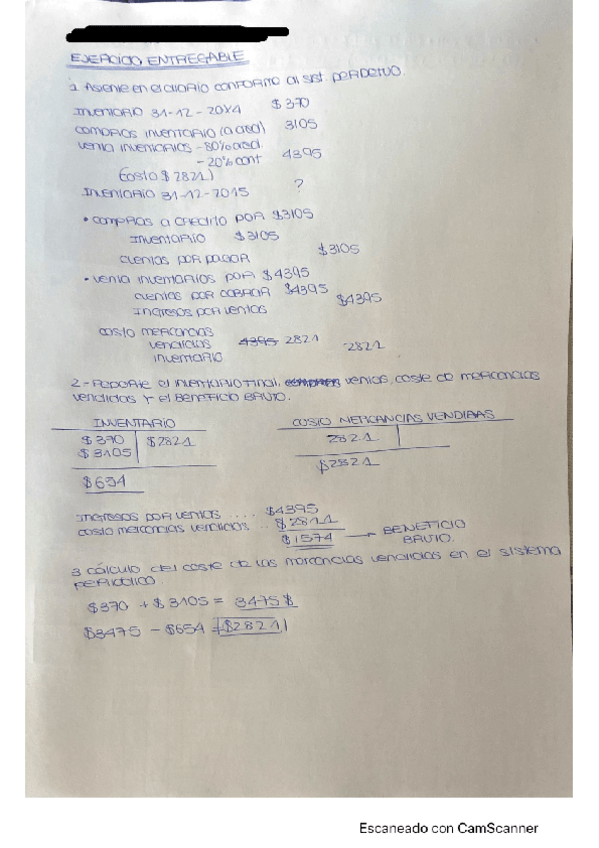 EJERCICIO ENTREGABLE
1 Asiente en el diario conforme al sist. perpetuo.
Inventario 31-12-20X4 $370
compras inventario (a cred) 3105
venta inventarios - 80% a cred. 4395
- 20% cont
(costo $2821)
Inventario 31-12-2015 ?
• compras a crédito por $3105
Inventario $3105
cuentas por pagar $3105
• venta inventarios por $4395
cuentas por cobrar $4395
Ingresos por ventas $4395
costo mercancías
vendidas 4395 2821
inventario 2821
2.- Reporte el inventario final, compras ventas, coste de mercancías
vendidas y el beneficio bruto.
INVENTARIO COSTO MERCANCIAS VENDIDAS
$370 $2821 2821
$3105
$654 $2821
Ingresos por ventas .... $4395
costo mercancías vendidas .. $2821
$1574 → BENEFICIO
BRUTO.
3 cálculo del coste de las mercancías vendidas en el sistema
periódico
$370 + $3105 = 3475 $
$3475 - $654 = $2821
Escaneado con CamScanner